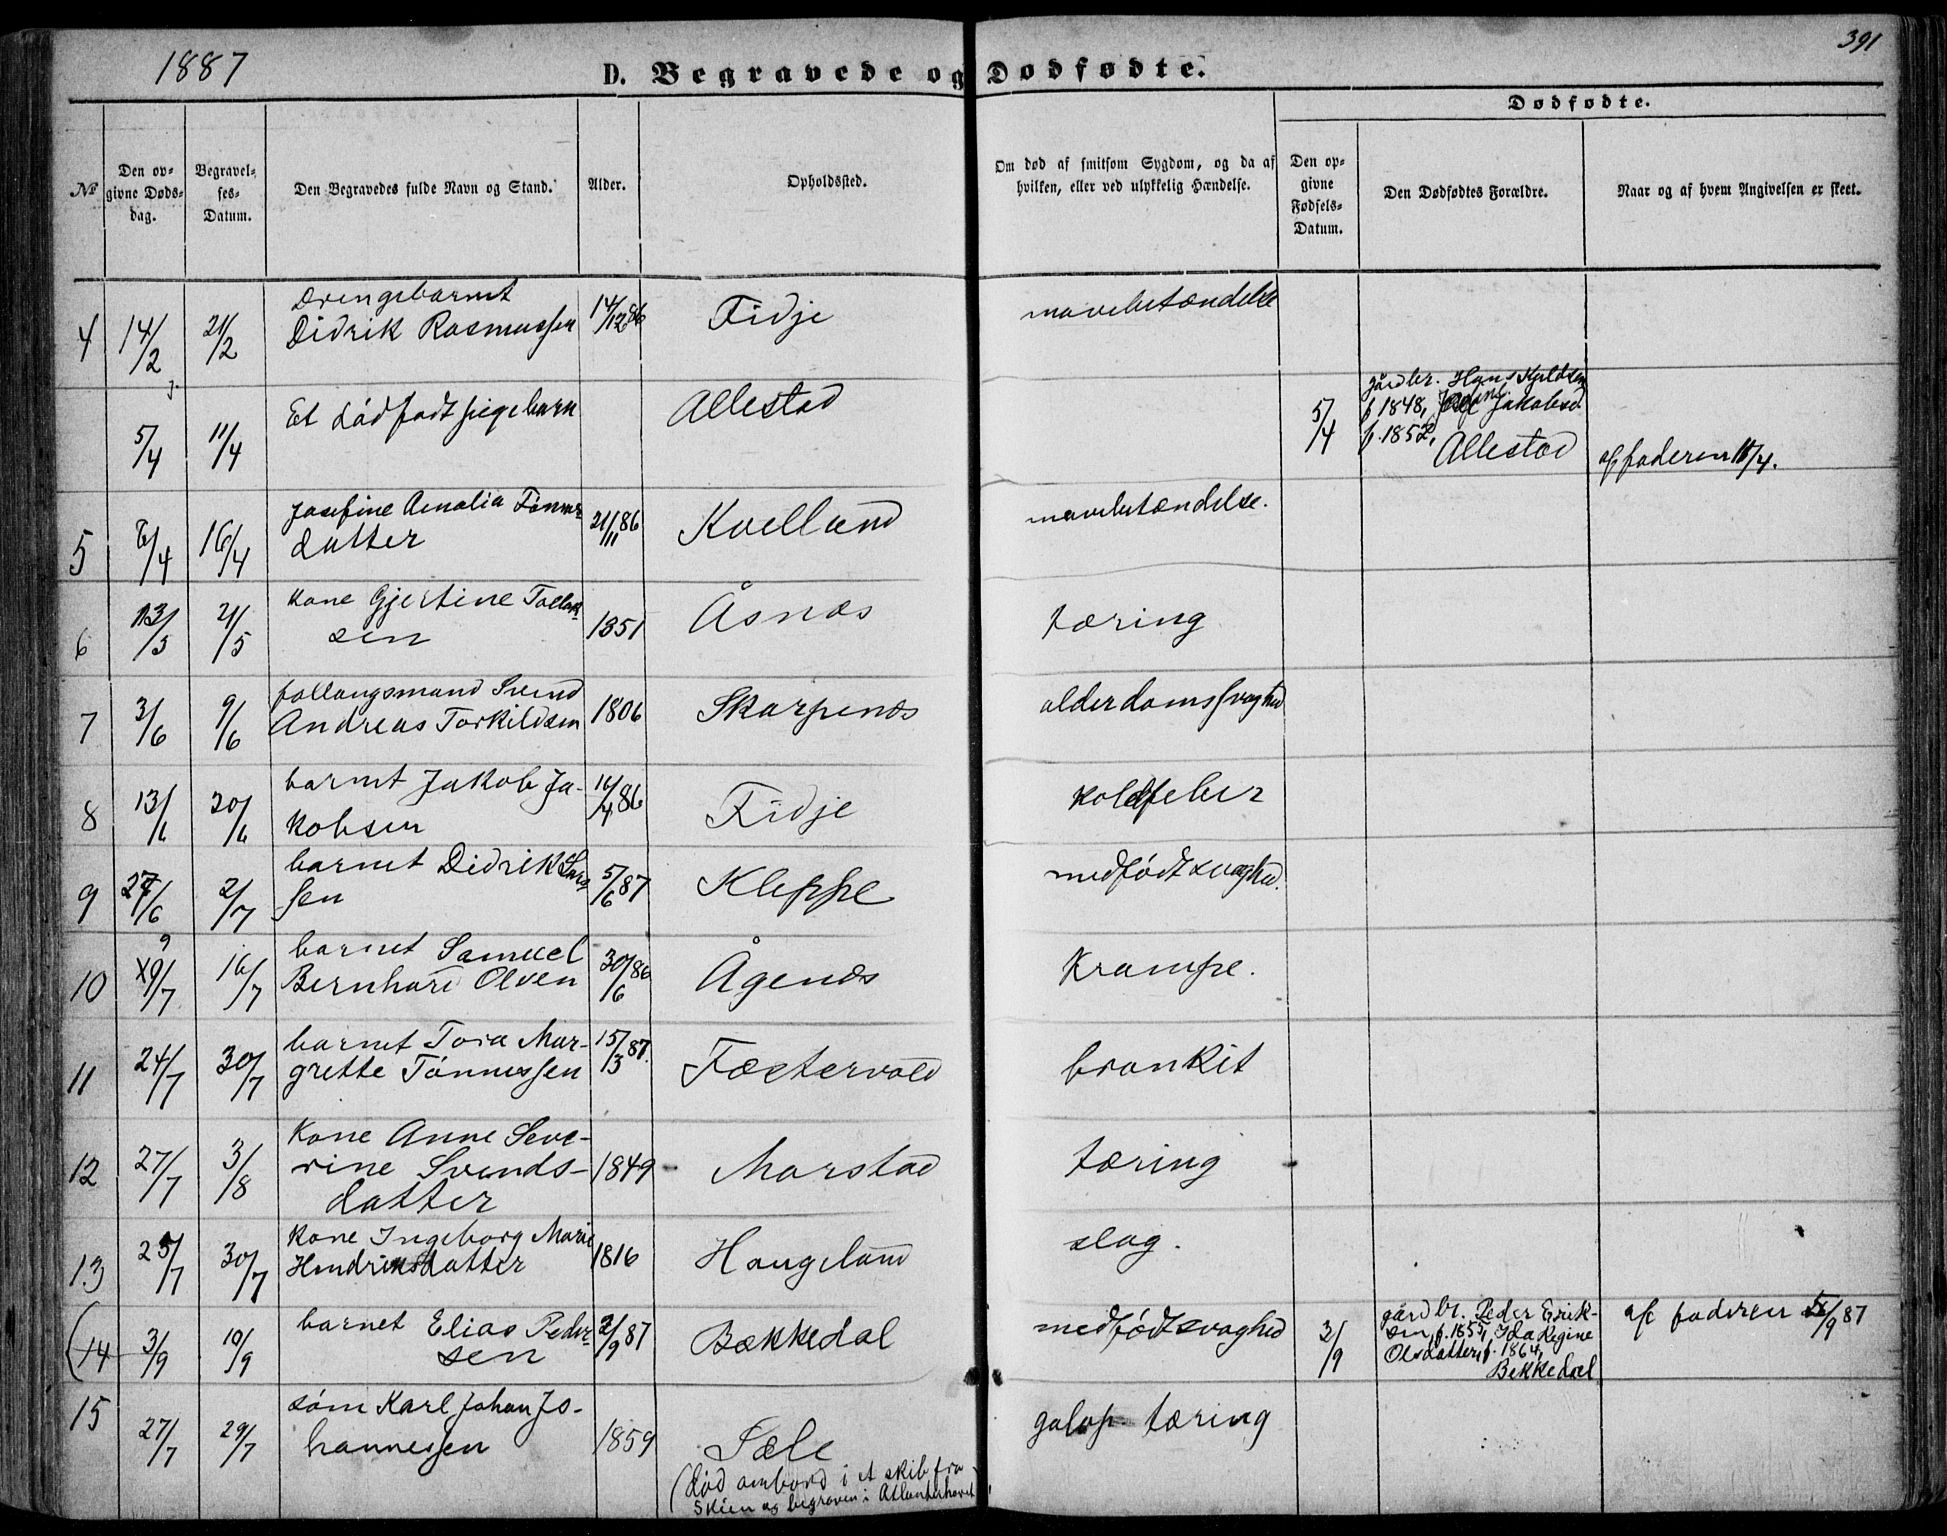 1887
391
D. Begravede og Dødfødte.
Dødfødte.
No
Den op-
givne Døds-
dag.
Begravel-
ses-
Datum.
Den Begravedes fulde Navn og Stand.
Alder.
Opholdssted.
Om død af smitsom Sygdom, og da af
hvilken, eller ved ulykkelig Hændelse.
Den op-
givne
Fødsels-
Datum.
Den Dødfødtes Forældre.
Naar og af hvem Angivelsen er skeet.
4 14/2 21/2 Drengebarnet
Didrik Rasmussen 14/12 86 Fidje mavebetændelse
5/4 11/4 Et dødfødt pigebarn Allestad 5/4
gårdbr. Hans Kjeldsen
f 1848, Jakobsd.
f. 1852,
Allestad af faderen 11/4.
5 6/4 16/4 Josefine Amalia Tønnes
datter 21/11 86 Kvelland mavebetændelse.
6 13/5 21/5 kone Gjertine Tollak-
sen 1851 Åsnæs tæring
7 3/6 9/6 follaugsmand Svend
Andreas Torkildsen 1806 Skarpenæs alderdomssvaghed
8 13/6 20/6 barnet Jakob Ja-
kobsen 16/4 86 Fidje koldfeber
9 27/6 2/7 barnet Didrik Lars
sen 5/6 87 Kleppe medfødt svaghed.
10 9/7 16/7 barnet Samuel
Bernhard Olsen 30/6 86 Ågenæs Krampe.
11 24/7 30/7 barnet Tora Mar-
grette Tønnessen 15/3 87. Fæstervold bronkit
12 27/7 3/8 Kone Anne Seve-
rine Svends-
datter 1849 Marstad tæring
13 25/7 30/7 Kone Ingeborg Marie
Hendriksdatter 1816 Haugeland slag.
(14 3/9 10/9 barnet Elias Peder-
sen 2/9 87 Bækkedal medfødt svaghed 2/9
gårdbr. Peder Erik-
sen, f. 1855, Ida Regine
Olsdatter, f. 1864,
Bekkedal af faderen 5/9 87
15 27/7 29/7 søm Karl Johan Jo-
hannessen 1859 Sæle galop tæring
(død ombord i et skib fra
Skien og begraven i Atlanterhavet